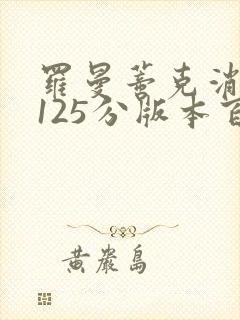 羅曼蒂克消
125分版本百
黃巖島